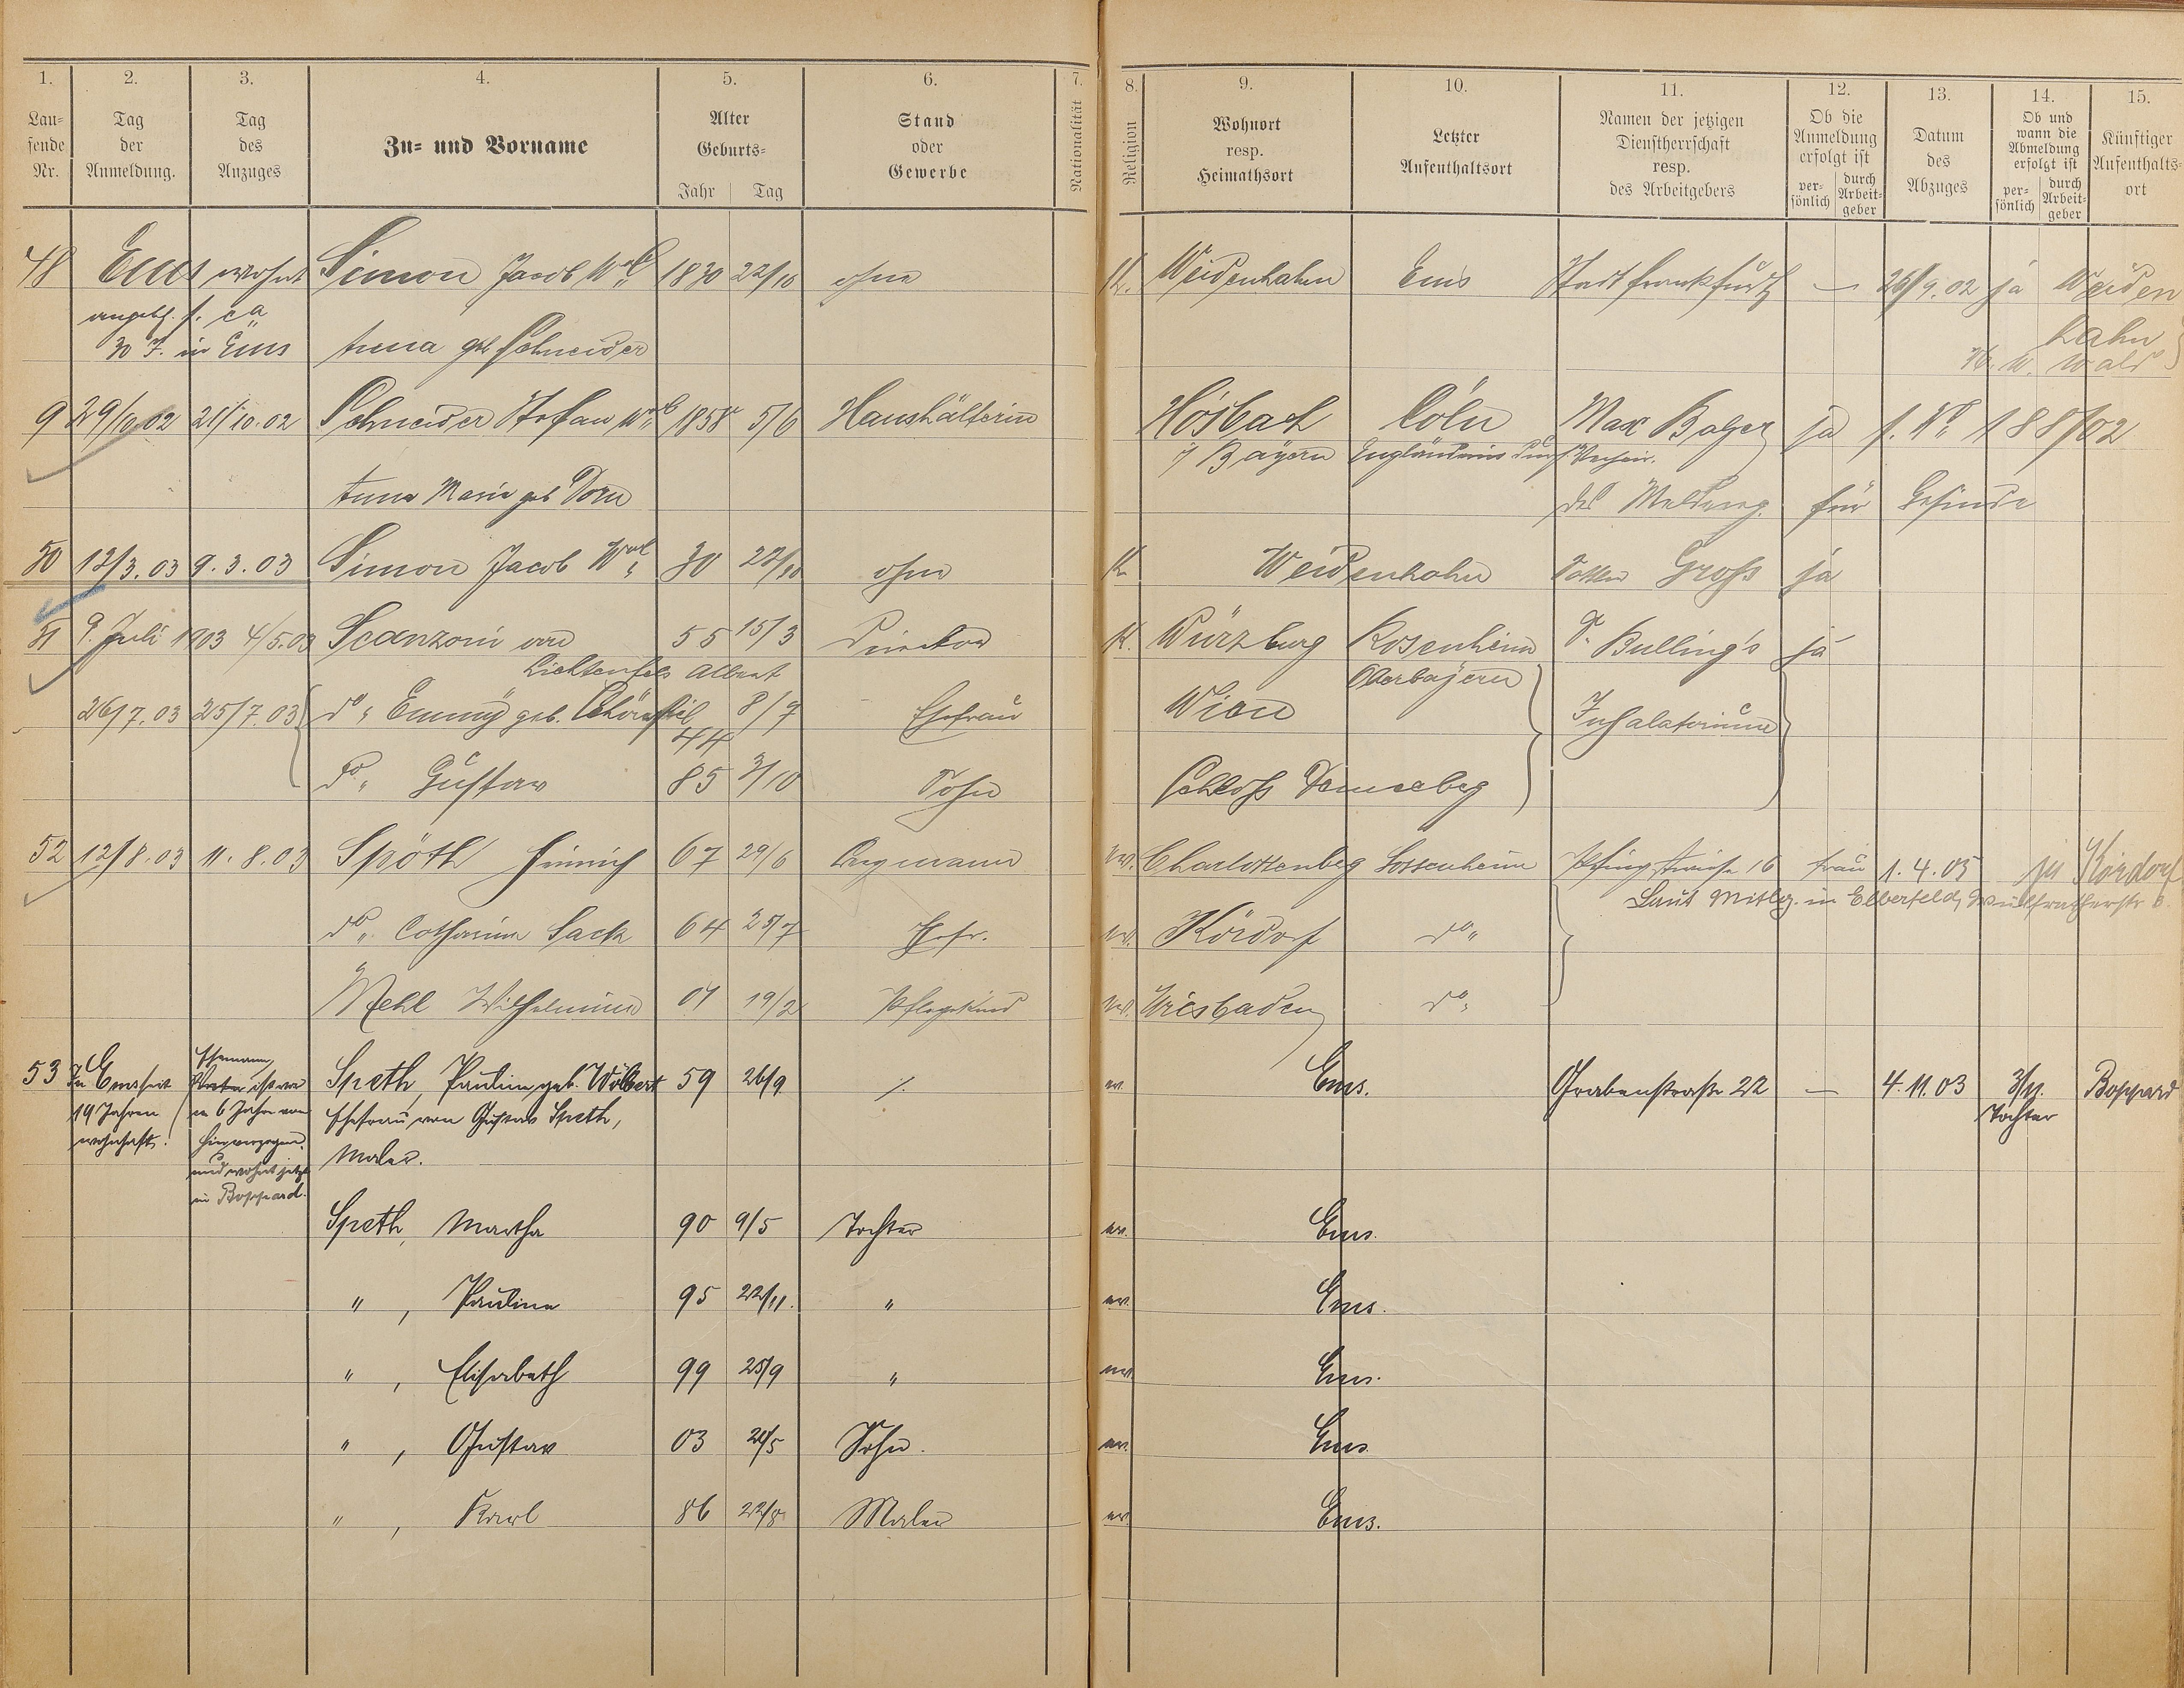 1. 2. 3. 4. 5. 6. 7. 8. 9. 10. 11. 12. 13. 14. 15.
Lau-
fende
Nr.
Tag
der
Anmeldung.
Tag
des
Anzuges
Zu- und Vorname
Alter
Geburts-
Jahr Tag
Stand
oder
Gewerbe
Nationalität
Religion
Wohnort
resp.
Heimathsort
Letzter
Aufenthaltsort
Namen der jetzigen
Dienstherrschaft
resp.
des Arbeitgebers
Ob die
Anmeldung
erfolgt ist
per-
sönlich
durch
Arbeit-
geber
Datum
des
Abzuges
Ob und
wann die
Abmeldung
erfolgt ist
per-
sönlich
durch
Arbeit-
geber
Künftiger
Aufenthalts-
ort
48 Ems wohnt Simon Jacob Wwe 1830 22/10 ohne K. Weidenhahn Ems Stadt Frankfurt — 26/9.02 ja Weiden
angebl. s. ca
hahn
30 J. in Ems Anna geb. Schneider
W. Wald
9 29/10 02 21/10.02 Schneider Stefan Wwe 1858 5/6 Haushälterin Hösbach Cöln Max Balzer ja s. No 188/02
i/Bayern
Anna Maria geb Dorn des Meldereg. für Gesinde
50 12/3.03 9.3.03 Simon Jacob Wwe 30 22/10 ohne K. Weidenhahn Gross ja
51 9. Juli 1903 4/5.03 Scanzoni von 55 15/3 Direktor K. Würzburg Rosenheim Dr. Bulling's ja
Lichtenfels Albert Oberbayern
26/7.03 25/7.03 do " Emmy geb. 44 8/7 Ehefrau Wien Inhalatorium
do " Gustav 85 3/10 Sohn Schloss
52 12/8.03 11.8.03 Späth Heinrich 67 29/6 Bergmann ev. Charlottenbeg Sossenheim Pfingstwiese 16 Frau 1.4.05 ja Kördorf
Laut Mitlg. in Elberfeld, Wülfratherstr 6.
do " Catharina Sack 64 25/7 Ehefr. ev. Kördorf do "
Mehl Wilhelmine 01 19/2 Pflegekind ev. Wiesbaden do "
53 In Ems seit
19 Jahren
wohnhaft.
Ehemann,
ist vor
ca 6 Jahren von
hier verzogen
und wohnt jetzt
in Boppard.
Speth, Pauline geb. Wölbert 59 26/9 /. ev. Ems. Grabenstraße 22 — 4.11.03 3/11. Boppard
Tochter
Ehefrau von Gustav Speth,
Maler.
Speth, Martha 90 9/5 Tochter ev. Ems.
" , Pauline 95 22/11. " ev. Ems.
" , Elisabeth 99 25/9 " ev. Ems.
" , Gustav 03 21/5 Sohn. ev. Ems
" , Karl 86 22/8 Maler ev. Ems.